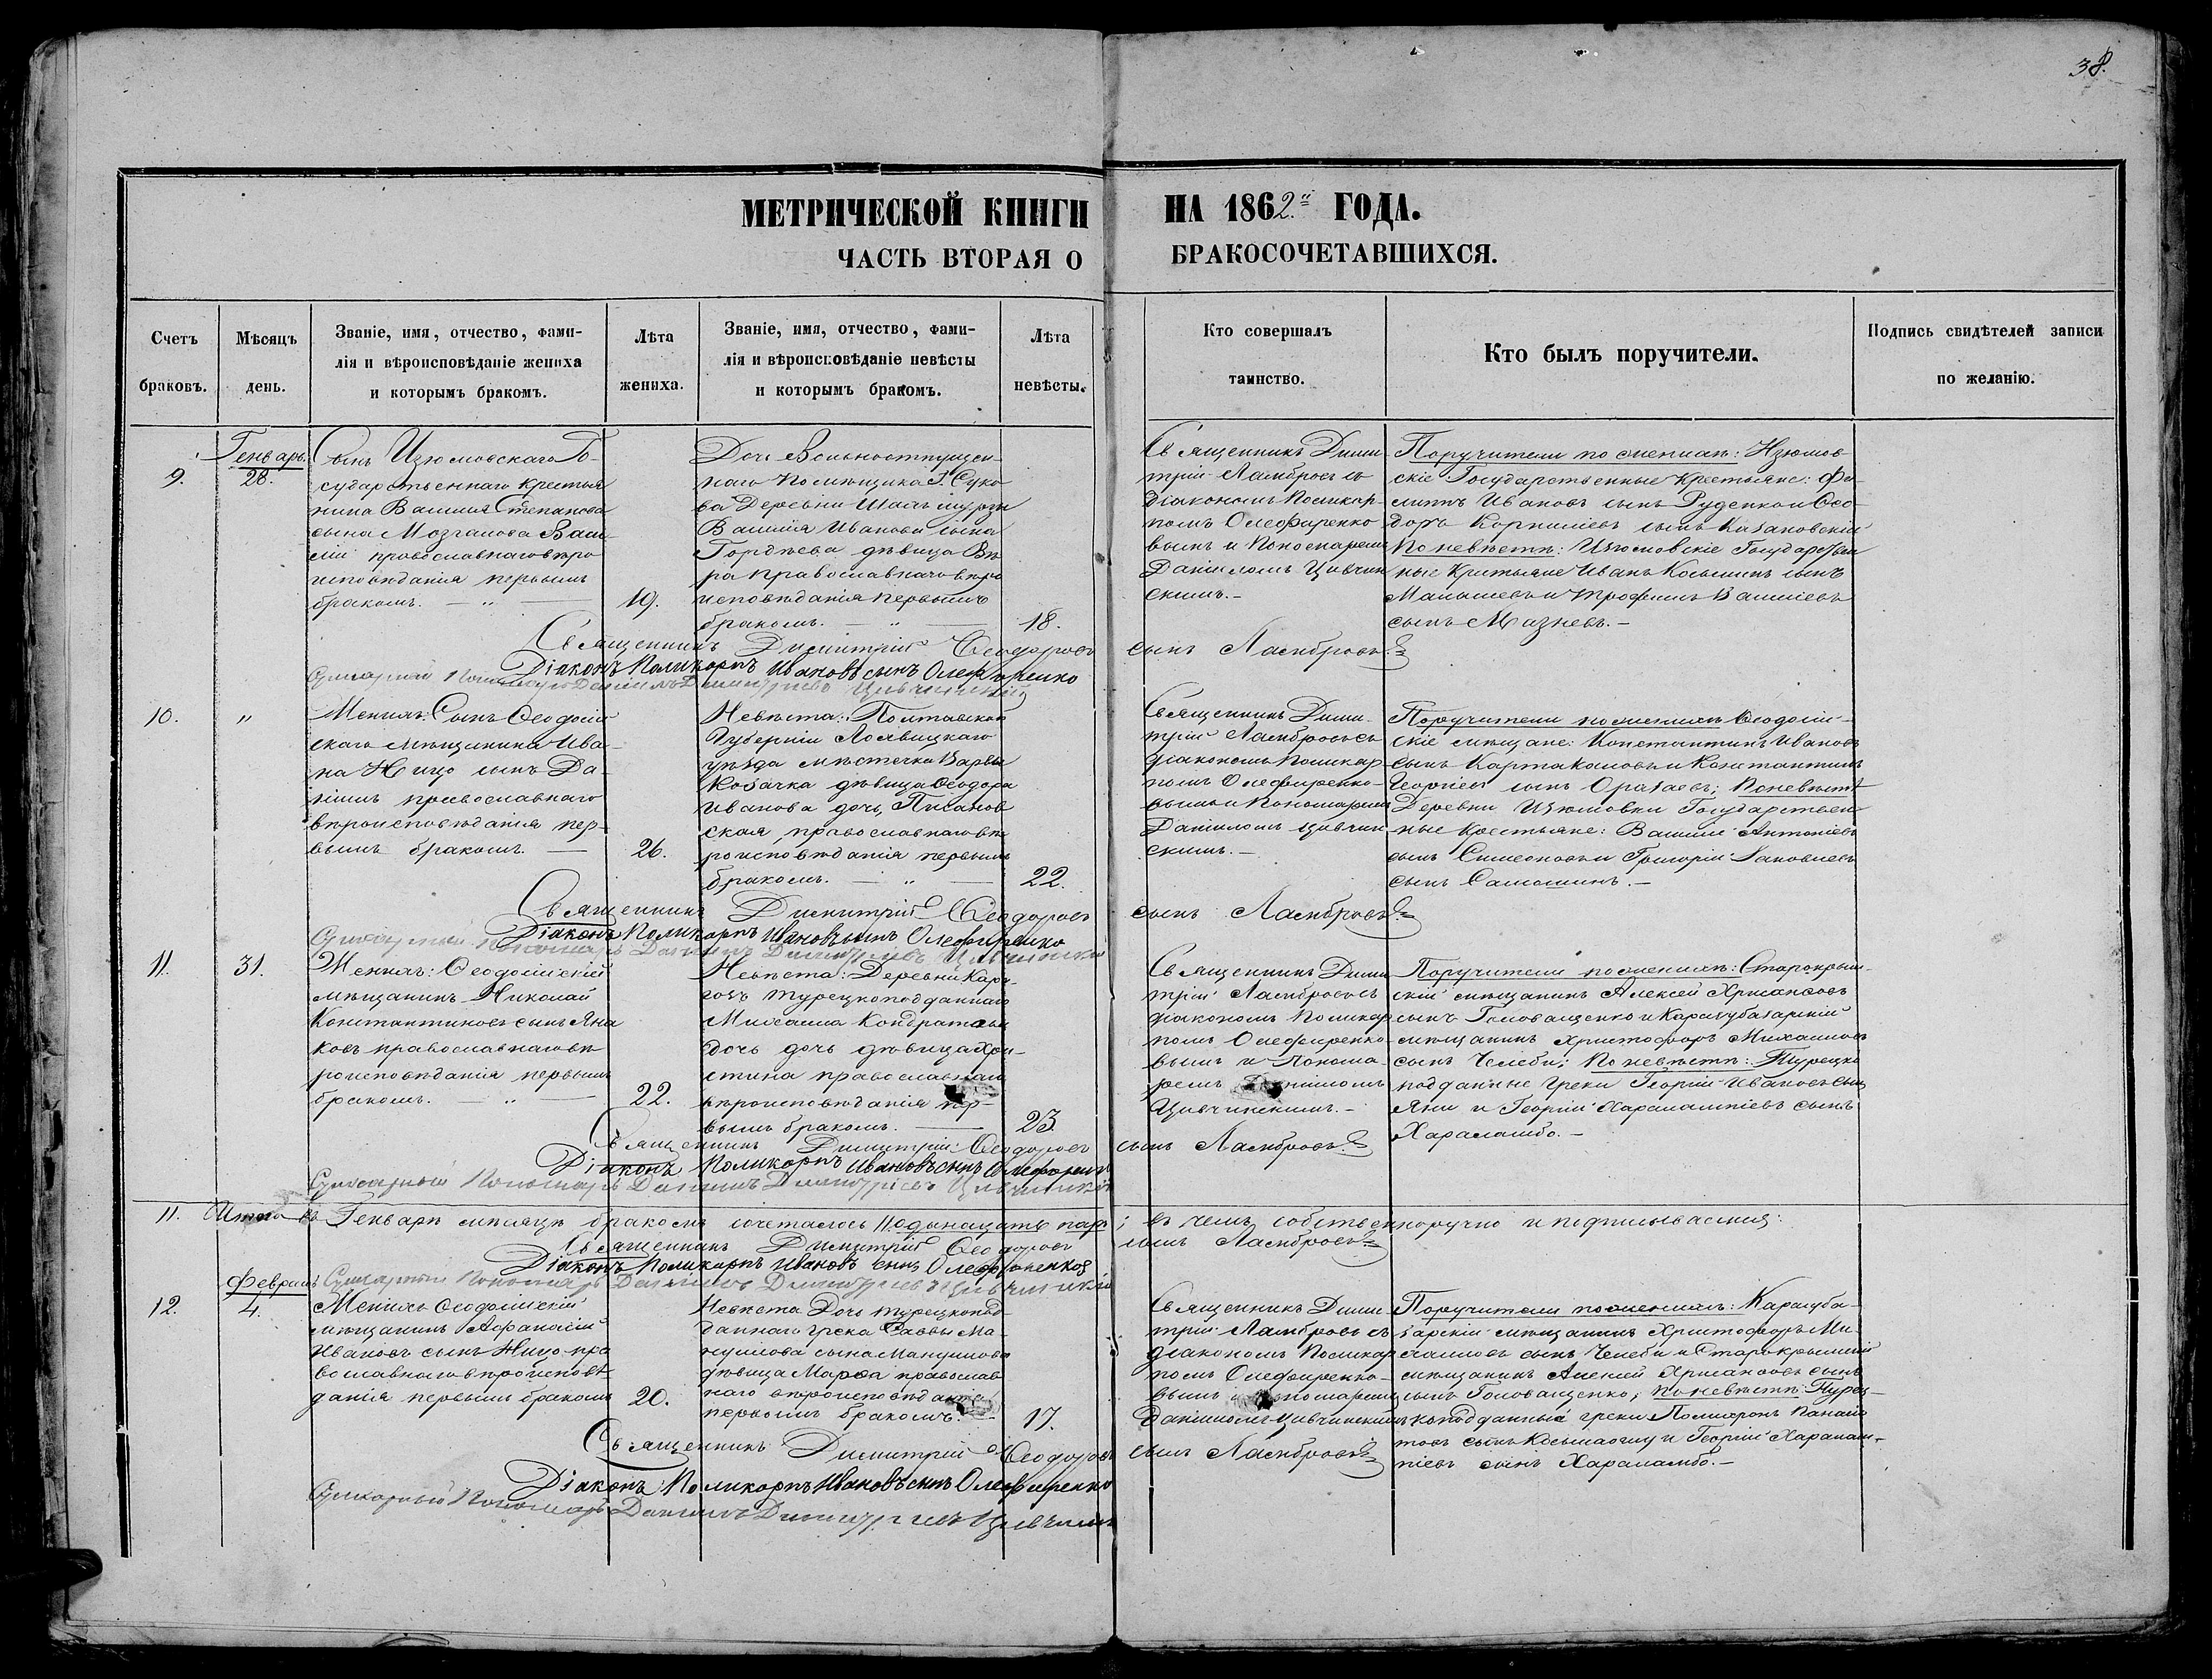 38.
МЕТРИЧЕСКОЙ КНИГИ НА 1862.й ГОДА.
ЧАСТЬ ВТОРАЯ О БРАКОСОЧЕТАВШИХСЯ.
Счетъ браковъ.
Мѣсяцъ день.
Званіе, имя, отчество, фами-
лія и вѣроисповѣданіе жениха
и которымъ бракомъ.
Лѣта жениха.
Званіе, имя, отчество, фами-
лія и вѣроисповѣданіе невѣсты
и которымъ бракомъ.
Лѣта невѣсты.
Кто совершалъ
таинство.
Кто былъ поручители.
Подпись свидѣтелей записи
по желанію.
9.
Генварь.
28.
Сынъ Изюмовскаго Го-
сударственнаго крестья
нина Василія Степанова
сына Мозгалова Васи-
лій православнаго вѣро
исповѣданія первымъ
бракомъ. — „ —
19.
Дочь Вольноотпущен-
наго Помѣщика Г. Суко
ва Деревни
Василія Иванова сына
Гордѣева дѣвица Вѣ
ра православнаго вѣро
исповѣданія первымъ
бракомъ. — „ —
18.
Священникъ Дими
трій Ламбровъ съ
діакономъ Поликар-
помъ Олефиренко
вымъ и Пономаремъ
Даніиломъ Цивчин
скимъ. —
Поручители по женихѣ: Изюмов
скіе Государственные крестьяне: Фи-
липпъ Ивановъ сынъ Руденко и Ѳео
доръ Корниліевъ сынъ Казановскій
По невѣстѣ: Изюмовскіе Государствен
ные крестьяне Иванъ Косьминъ сынъ
и Трофимъ Василіевъ
сынъ Мазневъ. —
Священникъ Димитрій Ѳеодоровъ сынъ Ламбровъ
Діаконъ Поликарпъ Ивановъ сынъ Олефиренко
Пономарь Даніилъ Димитріевъ Цивчинскій
10.
„
Женихъ: Сынъ Ѳеодосій
скаго мѣщанина Ива-
на Ницо сынъ Да-
ніилъ православнаго
вѣроисповѣданія пер-
вымъ бракомъ. —
26.
Невѣста: Полтавской
Губерніи Лохвицкаго
уѣзда мѣстечка Варвы
Козачка дѣвица Ѳеодора
Иванова дочь,
ская православнаго вѣ
роисповѣданія первымъ
бракомъ. — „ —
22.
Священникъ Дими-
трій Ламбровъ съ
діакономъ Поликар
помъ Олефиренко-
вымъ и Пономаремъ
Даніиломъ Цивчин
скимъ. —
Поручители по женихѣ Ѳеодосій-
скіе мѣщане: Константинъ Ивановъ
сынъ и Константинъ
Георгіевъ сынъ; По невѣстѣ
Деревни Изюмовки Государствен
ные крестьяне: Василій Антоніевъ
сынъ Симеоновъ и Григорій Іаковлевъ
сынъ Самошинъ. —
Священникъ Димитрій Ѳеодоровъ сынъ Ламбровъ
Діаконъ Поликарпъ Ивановъ сынъ Олефиренко
Пономарь Даніилъ Димитріевъ Цивчинскій
11.
31.
Женихъ: Ѳеодосійскій
мѣщанинъ Николай
Константиновъ сынъ Яна
ковъ православнаго вѣ
роисповѣданія первымъ
бракомъ. — „ —
22.
Невѣста: Деревни Кара-
гозъ турецкоподданнаго
Михаила Кондратова
дочь дочь дѣвица Хри-
стина православнаго
вѣроисповѣданія пер-
вымъ бракомъ. —
23.
Священникъ Дими
трій Ламбровъ съ
діакономъ Поликар
помъ Олефиренко-
вымъ и Понома-
ремъ Даніиломъ
Цивчинскимъ. —
Поручители по женихѣ: Старокрым-
скій мѣщанинъ Алексѣй Хрисанѳовъ
сынъ Головащенко и Карасубазарскій
мѣщанинъ Христофоръ Михаиловъ
сынъ Челеби; По невѣстѣ: Турецко
подданные греки Георгій Ивановъ сынъ
Яни и Георгій Харалампіевъ сынъ
Хараламбо. —
Священникъ Димитрій Ѳеодоровъ сынъ Ламбровъ
Діаконъ Поликарпъ Ивановъ сынъ Олефиренко
Пономарь Даніилъ Димитріевъ Цивчинскій
11. Итого въ Генварѣ мѣсяцѣ бракомъ сочеталось 11 одынацать паръ; въ чемъ собственноручно и подписываемся:
Священникъ Димитрій Ѳеодоровъ сынъ Ламбровъ
Діаконъ Поликарпъ Ивановъ сынъ Олефиренко
Пономарь Даніилъ Димитріевъ Цивчинскій
12.
Февраль
4.
Женихъ Ѳеодосійскій
мѣщанинъ Аѳанасій
Ивановъ сынъ Ницо пра
вославнаго вѣроисповѣ-
данія первымъ бракомъ
20.
Невѣста Дочь турецкопод-
даннаго грека Саввы Ма-
нуилова сына Мануилова
дѣвица Марѳа православ
наго вѣроисповѣданія
первымъ бракомъ. —
17.
Священникъ Дими-
трій Ламбровъ съ
діакономъ Поликар
помъ Олефиренко-
вымъ и Пономаремъ
Даніиломъ Цивчинскимъ
Поручители по женихѣ: Карасуба-
зарскій мѣщанинъ Христофоръ Ми-
хаиловъ сынъ Челеби и Старокрымскій
мѣщанинъ Алексѣй Хрисанѳовъ сынъ
сынъ Головащенко; по невѣстѣ: Турец-
коподданный греки Поликронъ Панаіо
товъ сынъ и Георгій Харалам-
піевъ сынъ Хараламбо. —
Священникъ Димитрій Ѳеодоровъ сынъ Ламбровъ
Діаконъ Поликарпъ Ивановъ сынъ Олефиренко
Пономарь Даніилъ Димитріевъ Цивчинскій